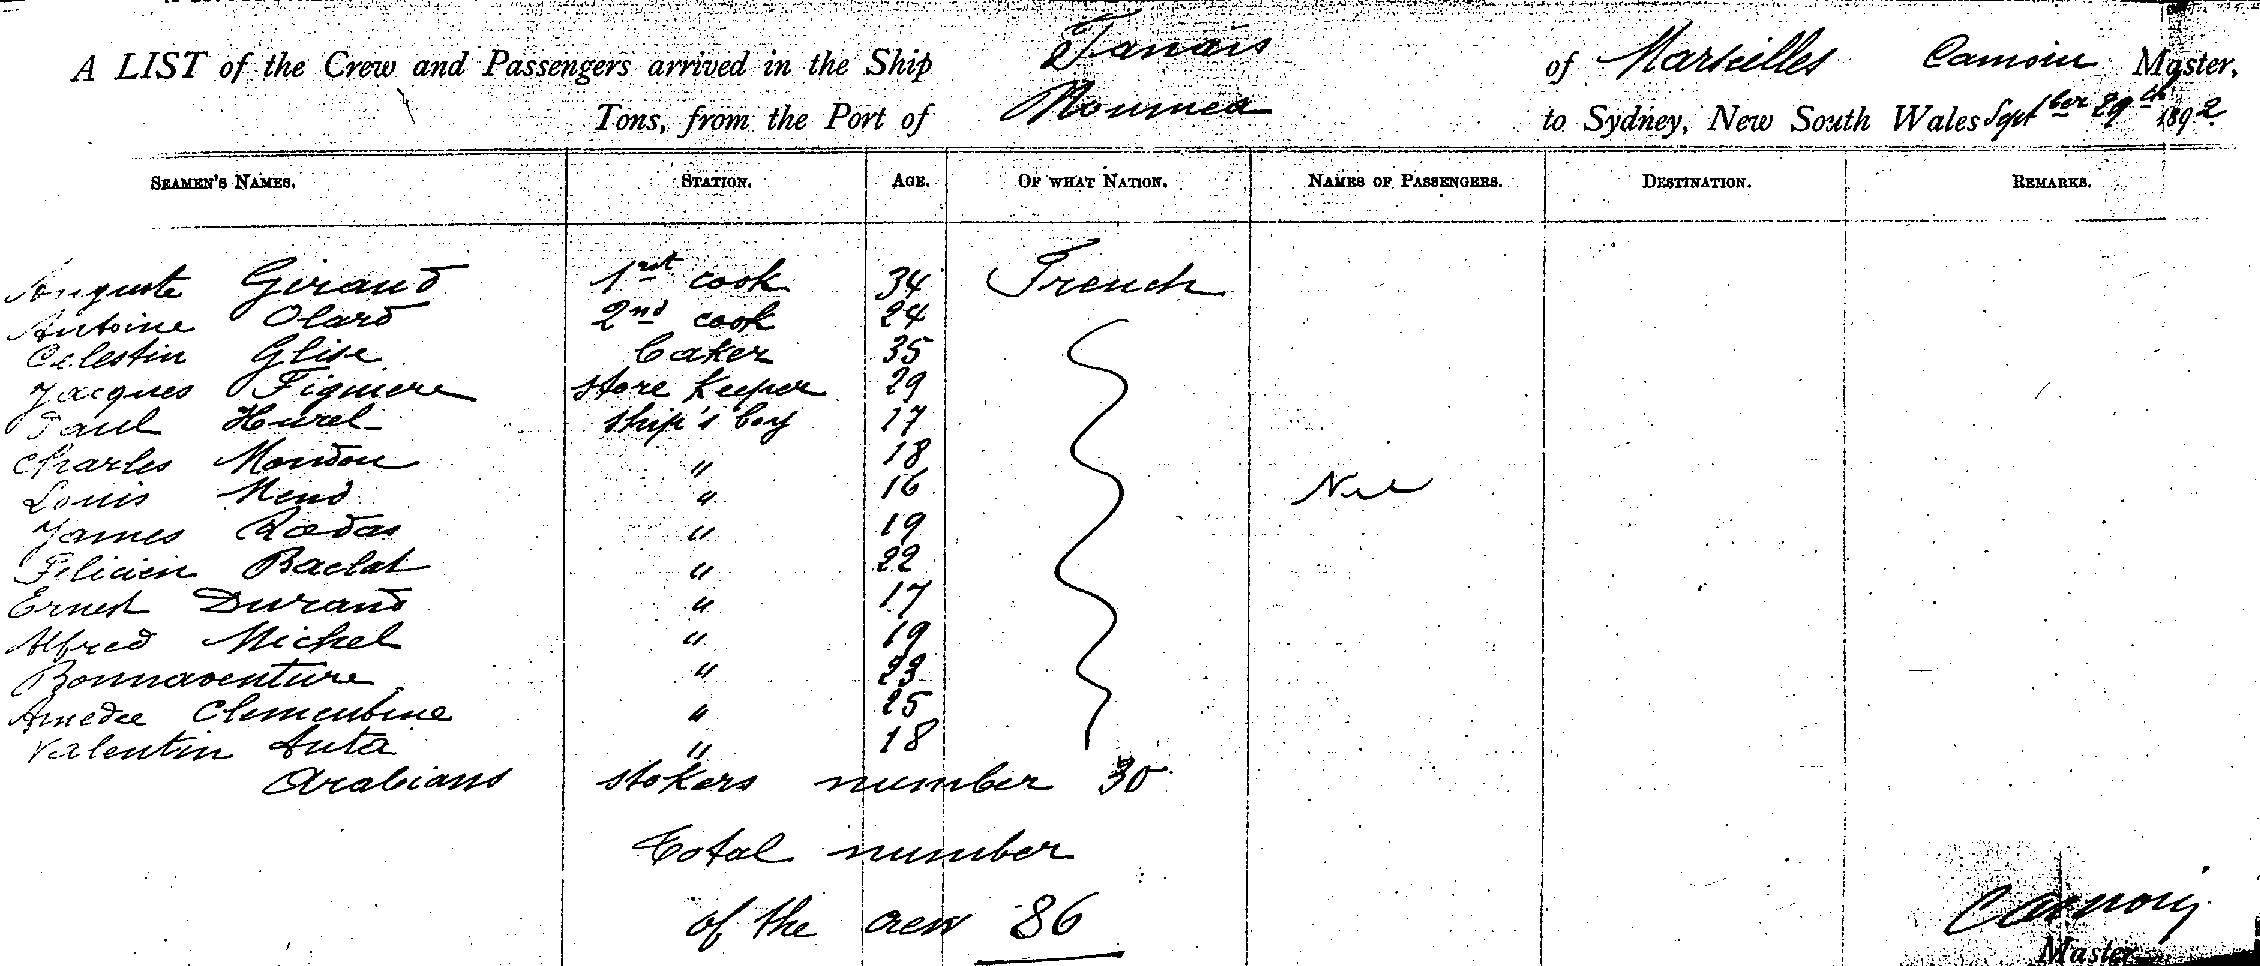 A LIST of the Crew and Passengers arrived in the Ship Tanais of Marseilles Camoin Master,
Tons, from the Port of Noumea to Sydney, New South Wales Septber 29th 1892
SEAMEN'S NAMES. STATION. AGE. OF WHAT NATION. NAMES OF PASSENGERS. DESTINATION. REMARKS.
Auguste Giraud 1rst cook 34 French
Antoine Olard 2nd cook 24
Celestin Glise baker 35
Jacques Figuiere store keeper 29
Paul Hurel ship's boy 17
Charles Mondon " 18
Louis Mend " 16 Nil
James Rodas " 19
Felicien Baclat " 22
Ernest Durand " 17
Alfred Michel " 19
Bonnaventure " 23
Amedee Clementine " 25
Valentin Auta " 18
Arabians stokers number 30
Total number
of the crew 86
Camoin
Master